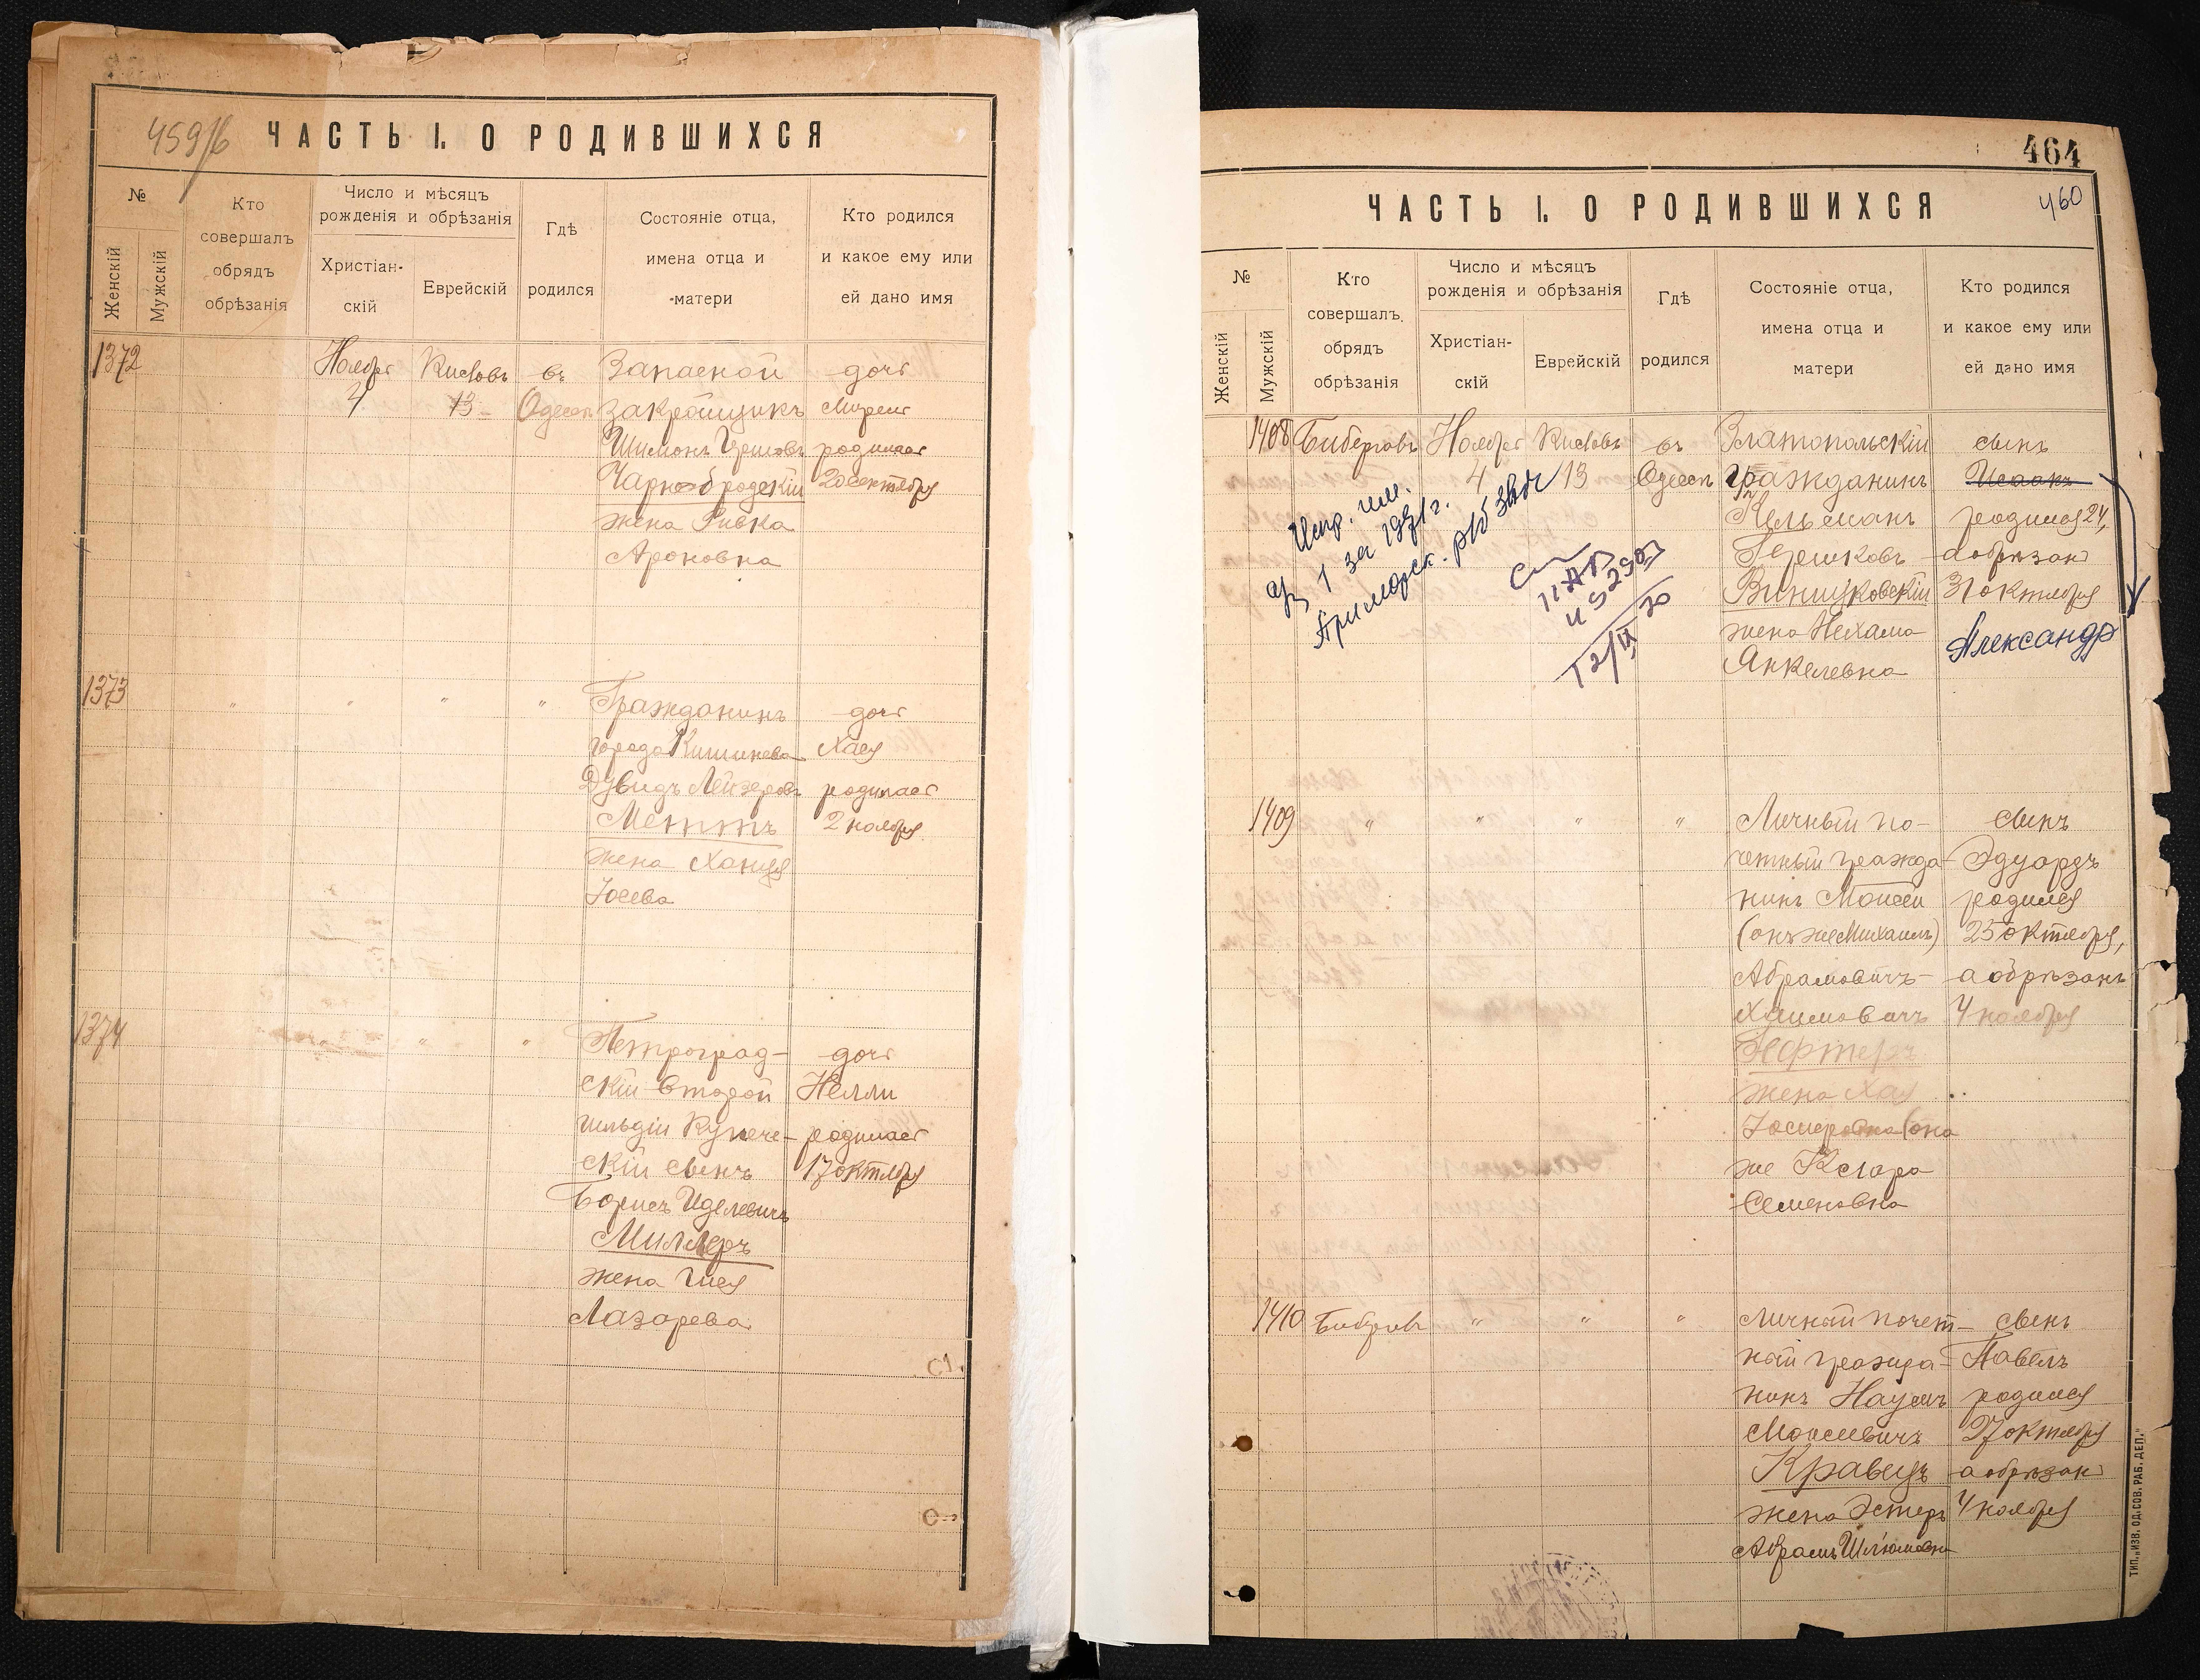 459/б
ЧАСТЬ I. О РОДИВШИХСЯ
№
Женскій
Мужскій
Кто
совершалъ
обрядъ
обрѣзанія
Число и мѣсяцъ
рожденія и обрѣзанія
Христіан-
скій
Еврейскій
Гдѣ
родился
Состояніе отца,
имена отца и
матери
Кто родился
и какое ему или
ей дано имя
1372
Ноября
4
Кислевъ
13
въ
Одессѣ
Запасной
закройщикъ
Шимонъ Гершовъ
Чарнобродскій
жена Ривка
Ароновна
дочь
родилась
20 октября
1373
" " " "
Гражданинъ
города Кишинева
Дувидъ Лейзеровъ
Меттъ
жена Ханця
Іосева
дочь
Хая
родилась
2 ноября
1374
" " "
Петроград-
скій второй
гильдіи купече-
скій сынъ
Борисъ Иделевичъ
Миллеръ
жена Гися
Лазарева
дочь
Нелли
родилась
17 октября
464
460
ЧАСТЬ I. О РОДИВШИХСЯ
№
Женскій
Мужскій
Кто
совершалъ
обрядъ
обрѣзанія
Число и мѣсяцъ
рожденія и обрѣзанія
Христіан-
скій
Еврейскій
Гдѣ
родился
Состояніе отца,
имена отца и
матери
Кто родился
и какое ему или
ей дано имя
1408
Биберговъ
Ноября
4
Кислевъ
13
въ
Одессѣ
Златопольскій
гражданинъ
Кельманъ
Гершковъ
Виницковскій
жена Нехама
Янкелевна
сынъ
Исаакъ
родился 24,
а обрѣзанъ
31 октября
Александр
Испр. им.
1 за
Приморск.
1409
" " " "
Личный по-
четный гражда-
нинъ Моисей
(онъ же Михаилъ)
Абрамовичъ-
Хаимовичъ
жена Хая
(она
же Клара
Семеновна
сынъ
Эдуардъ
родился
25 октября,
а обрѣзанъ
4 ноября
1410
Биберговъ
" " "
Личный почет-
ный гражда-
нинъ Наумъ
Моисеевичъ
Кравецъ
жена Эстеръ
Абрамъ Шлюмовна
сынъ
Павелъ
родился
27 октября
а обрѣзанъ
4 ноября
ТИП. „ИЗВ. ОД. СОВ. РАБ. ДЕП."